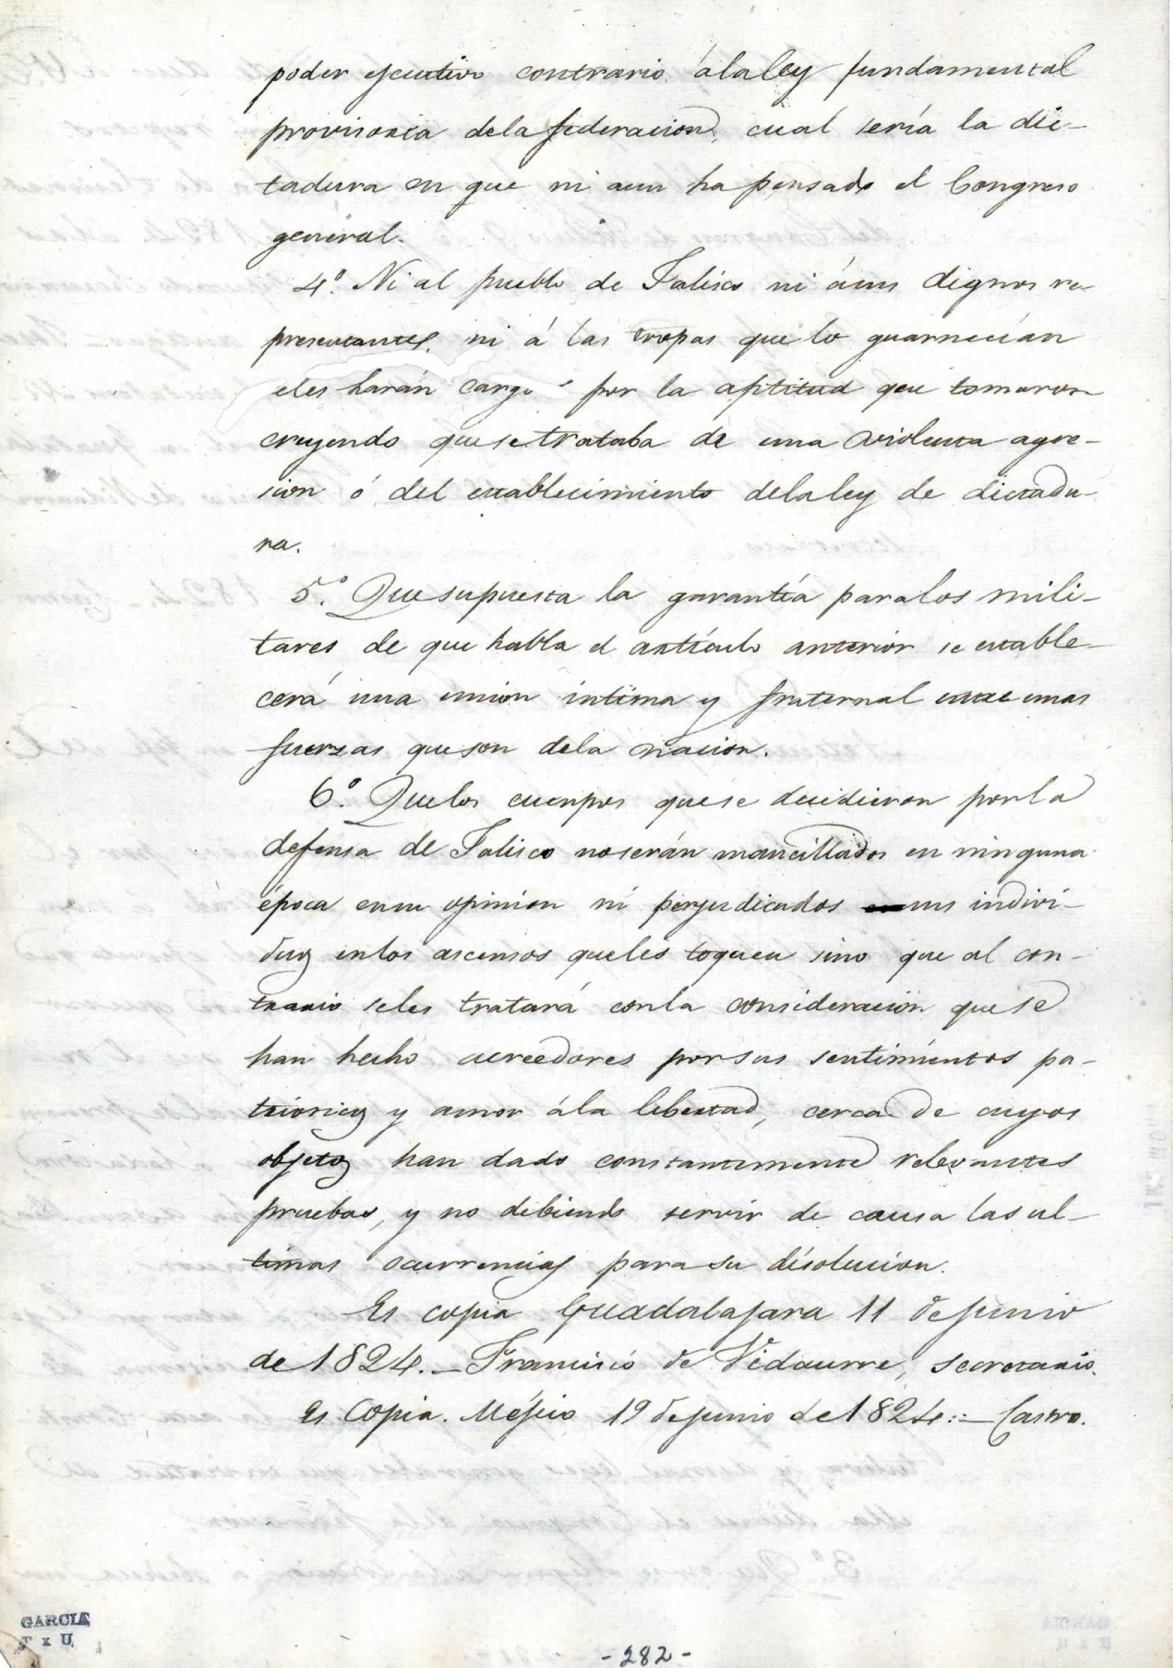 poder ejecutivo contrario á la ley fundamental
provisoria de la federacion, cuál sería la dic-
tadura en que ni aun ha pensado el Congreso
general.
4.º Ni al pueblo de Jalisco ni á sus dignos re-
presentantes, ni á las tropas que lo guarnecían
se les harán cargos por la aptitud que tomaron
creyendo que se trataba de una violenta agre-
sion ó del establecimiento de la ley de dictadu-
ra.
5.º Que supuesta la garantía para los mili-
tares de que habla el artículo anterior se estable-
cerá una union intima y fraternal entre unas
fuerzas que son de la nacion.
6.º Que los cuerpos que se decidieron por la
defensa de Jalisco no serán mancillados en ninguna
época en su opinion ni perjudicados sus indivi-
duos en los ascensos que les toquen sino que al con-
trario se les tratará con la consideracion que se
han hecho acreedores por sus sentimientos pa-
trioticos y amor á la libertad, cerca de cuyos
objetos han dado constantemente relevantes
pruebas, y no debiendo servir de causa las ul-
timas ocurrencias para su disolucion.
Es copia Guadalajara 11 de junio
de 1824. — Francisco de Vidaurre, secretario.
Es Copia. Méjico 19 de junio de 1824. — Castro.
GARCIA
T x U
- 282 -